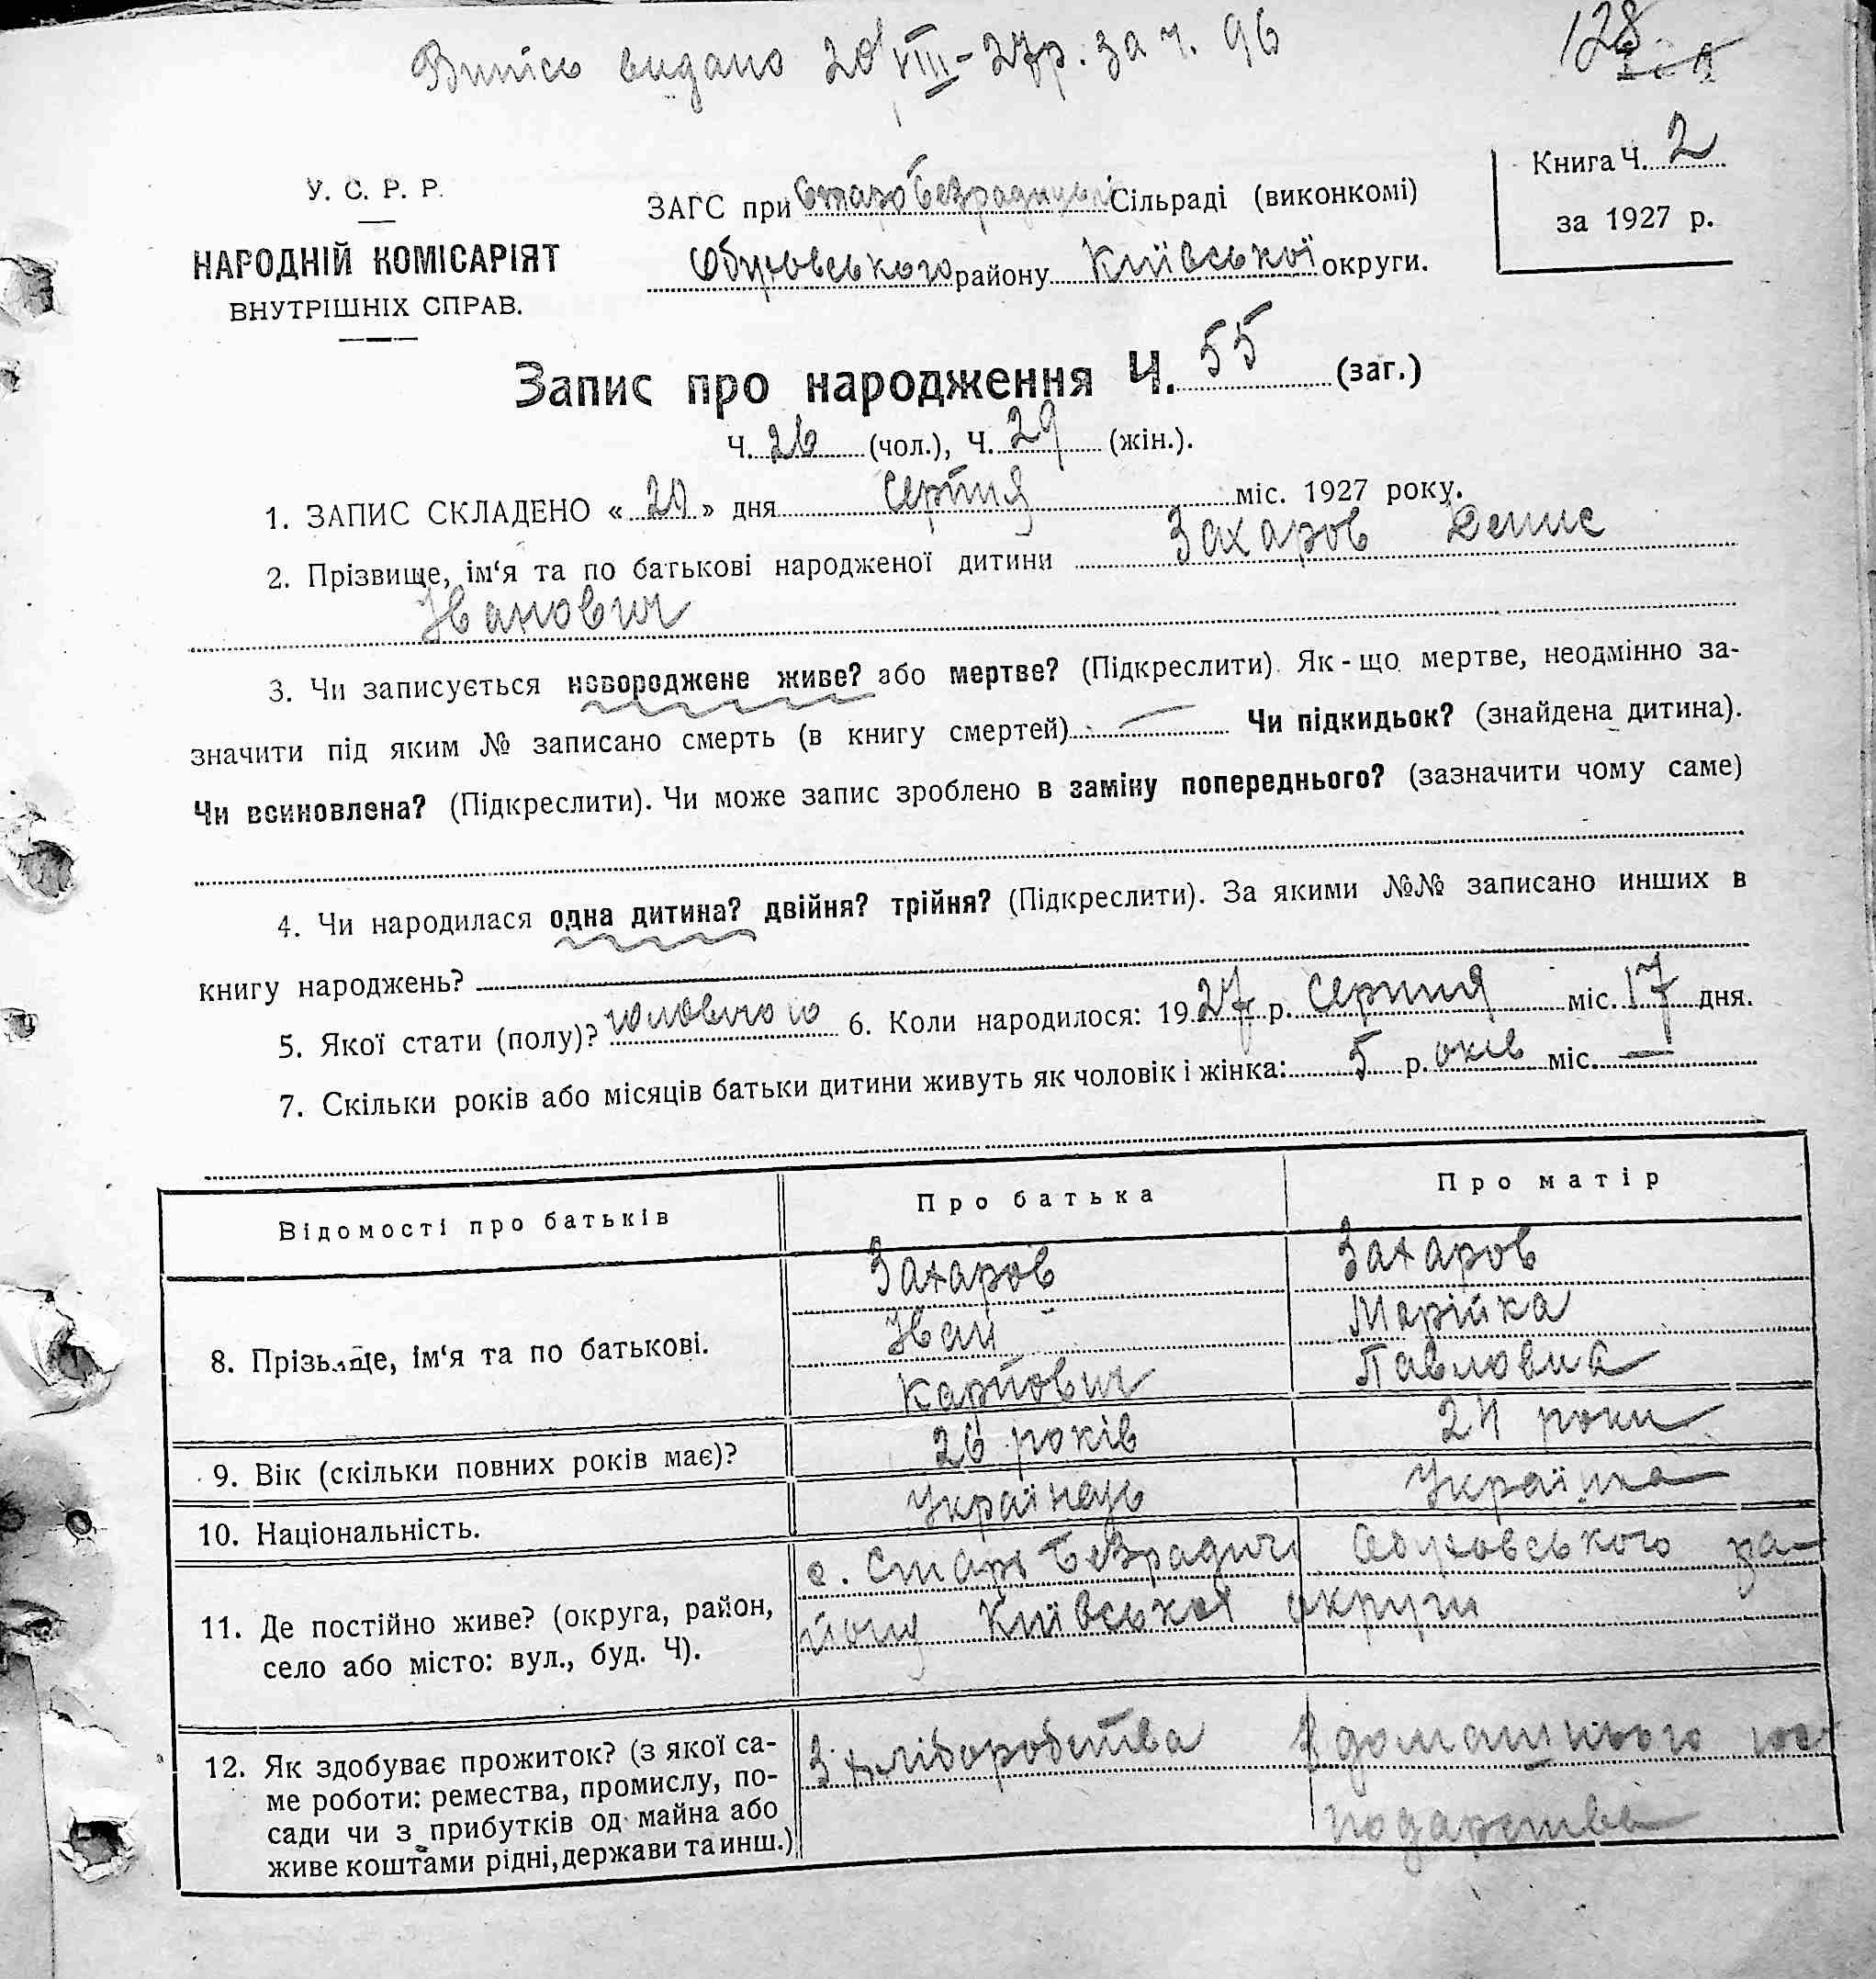 Випись видано 20/VIII-27р. За ч. 96
128
У. С. Р. Р.
НАРОДНІЙ КОМІСАРІЯТ
ВНУТРІШНІХ СПРАВ.
ЗАГС при Старо Безрадицькій Сільраді (виконкомі)
Обуховського району Київської округи.
Книга Ч. 2
за 1927 р.
Запис про народження Ч. 55 (заг.)
Ч. 26 (чол.), Ч. 29 (жін.).
1. ЗАПИС СКЛАДЕНО « 20 » дня Серпня міс. 1927 року.
2. Прізвище, ім‘я та по батькові народженої дитини Захаров Денис
Іванович
3. Чи записується новороджене живе? або мертве? (Підкреслити). Як-що мертве, неодмінно за-
значити під яким № записано смерть (в книгу смертей) — Чи підкидьок? (знайдена дитина).
Чи всиновлена? (Підкреслити). Чи може запис зроблено в заміну попереднього? (зазначити чому саме)
4. Чи народилася одна дитина? двійня? трійня? (Підкреслити). За якими №№ записано инших в
книгу народжень?
5. Якої стати (полу)? чоловічою 6. Коли народилося: 1927 р. Серпня міс. 17 дня.
7. Скільки років або місяців батьки дитини живуть як чоловік і жінка: 5 р.оків міс. —
Відомості про батьків Про батька Про матір
8. Прізвище, ім‘я та по батькові.
Захаров Захаров
Іван Марійка
Карпович Павловна
9. Вік (скільки повних років має)? 26 років 24 роки
10. Національність. Українець Українка
11. Де постійно живе? (округа, район,
село або місто: вул., буд. Ч).
с. Старі Безрадичі Обуховського ра-
йону Київської округи
12. Як здобуває прожиток? (з якої са-
ме роботи: ремества, промислу, по-
сади чи з прибутків од майна або
живе коштами рідні, держави та инш.)
З хліборобства З домашнього гос
подарства